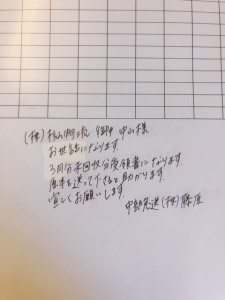 (株) 御中 中山様
お世話になります。
3月分未回収分受領書になります。
原本を送って下さると助かります。
宜しくお願いします。
中部発送(株) 藤原